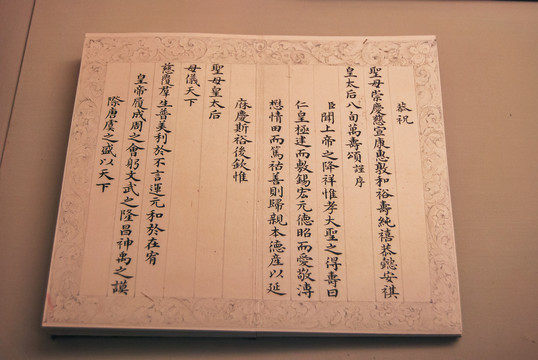 恭祝
聖母崇慶慈宣康惠敦和裕壽純禧恭懿安祺
皇太后八旬萬壽頌謹序
臣聞上帝之降祥惟孝大聖之得壽曰
仁皇極建而敷錫宏元德昭而愛敬溥
懋情田而篤祜善則歸親本德產以延
庥慶斯裕後欽惟
聖母皇太后
母儀天下
慈覆羣生普美利於不言運元和於在宥
皇帝履成周之會躬文武之隆昌神禹之謨
際唐虞之盛以天下